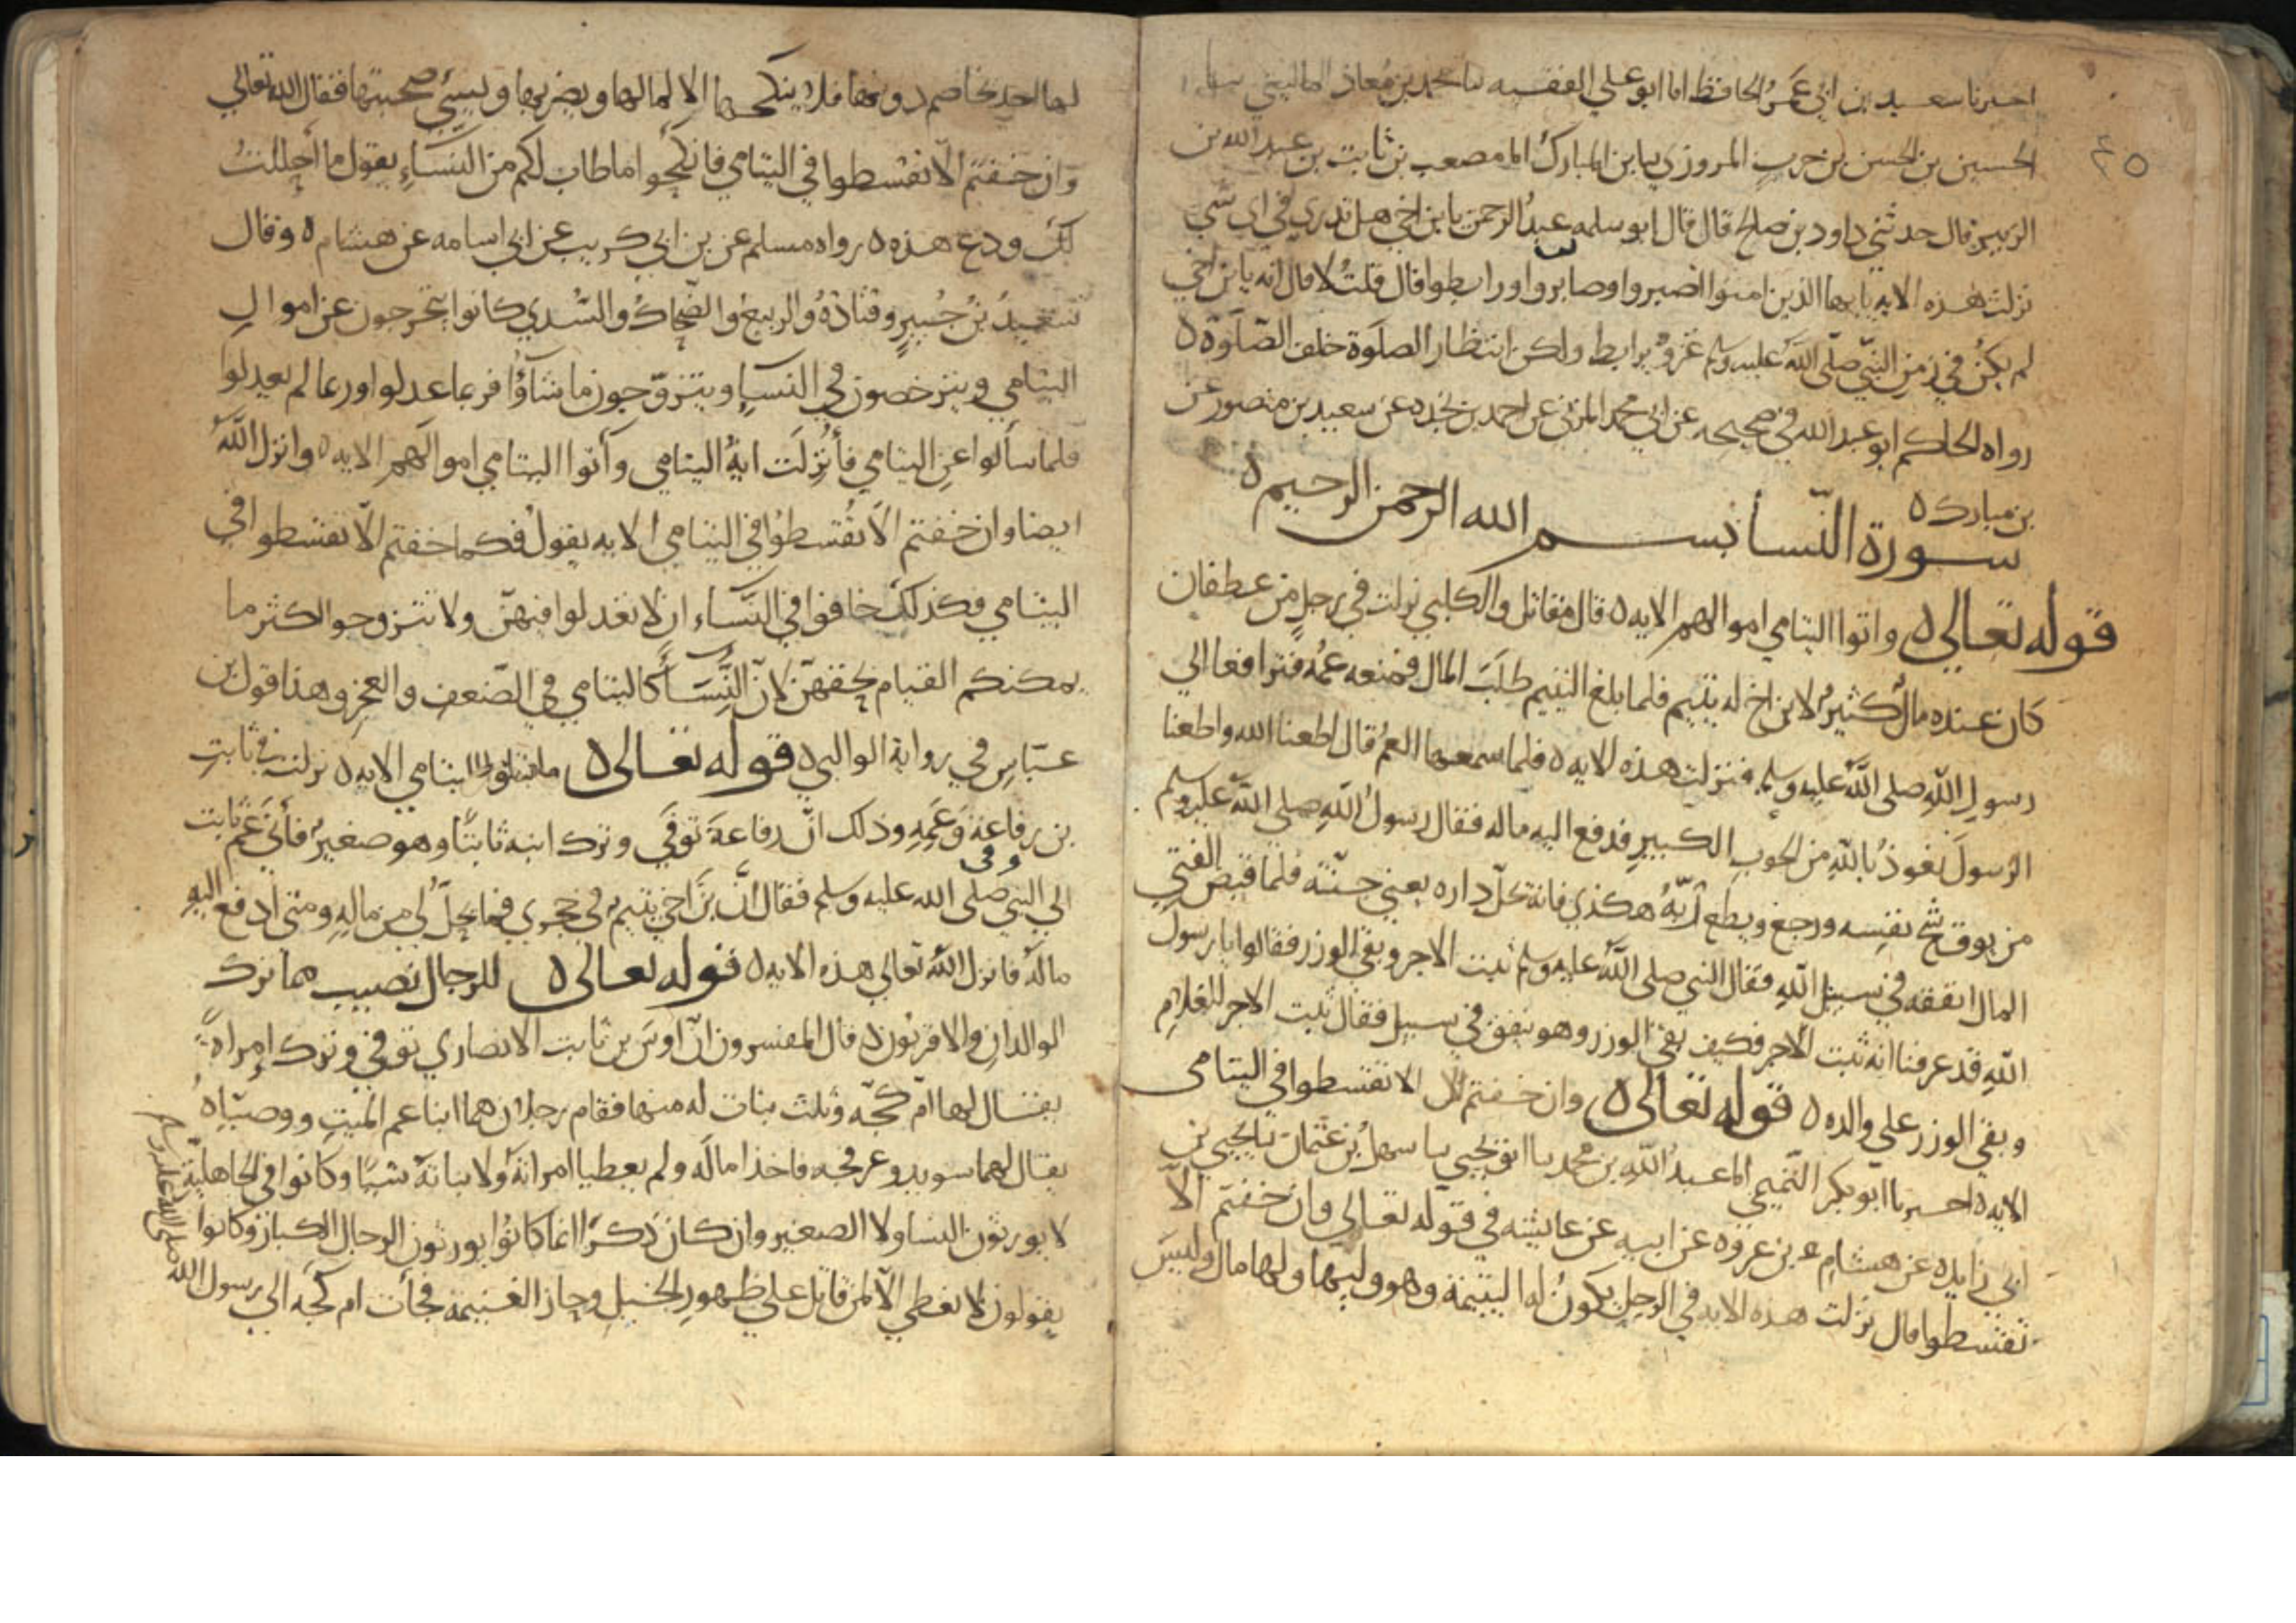 ٤٥
اخبرنا سعيد بن ابي عمرو الحافظ انا ابو علي الفقيه نا محمد بن معاذ الماليني نا
الحسين بن الحسن بن حرب المروزي نا بن المبارك انا مصعب بن ثابت بن عبد الله بن
الزبير قال حدثني داود بن صالح قال قال ابو سلمه عبد الرحمن يا بن اخي هل تدري في اي شي
نزلت هذه الايه يا يها الذين امنوا اصبروا وصابروا ورابطوا قال قلت لا قال انه يا بن اخي
لم يكن في زمن النبي صلى الله عليه وسلم غزو يرابط ولكن انتظار الصلوة خلف الصلوة ٥
رواه الحاكم ابو عبد الله في صحيحه عن ابي محمد المزني عن احمد بن نجده عن سعيد بن منصور عن
بن مبارك ٥
سورة النسا بسم الله الرحمن الرحيم ٥
قوله تعالى ٥ واتوا اليتامي اموالهم الايه ٥ قال مقاتل والكلبي نزلت في رجل من غطفان
كان عنده مال كثير لابن اخ له يتيم فلما بلغ اليتيم طلب المال فمنعه عمه فترافعا الي
رسول الله صلى الله عليه وسلم فنزلت هذه الايه ٥ فلما سمعها العم قال اطعنا الله واطعنا
الرسول نعوذ بالله من الحوب الكبير فدفع اليه ماله فقال رسول الله صلى الله عليه وسلم
من يوق شح نفسه ورجع ويطع ربه هكذي فانه يحل داره يعني جنته فلما قبض الفتي
المال انفقه في سبيل الله فقال النبي صلى الله عليه وسلم ثبت الاجر وبقي الوزر فقالوا يا رسول
الله قد عرفنا انه ثبت الاجر فكيف بقي الوزر وهو ينفق في سبيل فقال ثبت الاجر للغلام
وبقي الوزر علي والده ٥ قوله تعالى ٥ وان خفتم الا تقسطوا في اليتامى
الايه ٥ اخبرنا ابو بكر التميمي انا عبد الله بن محمد نا ابو يحيي نا سهل بن عثمان نا يحيي بن
ابي زايده عن هشام بن عروه عن ابيه عن عايشه في قوله تعالي وان خفتم الا
تقسطوا قال نزلت هذه الايه في الرجل يكون له اليتيمة وهو وليها ولها مال وليس
لها احد يخاصم دونها فلا ينكحها الا لمالها ويضربها ويسيي صحبتها فقال الله تعالي
وان خفتم الا تقسطوا في اليتامي فانكحوا ما طاب لكم من النساء يقول ما احللت
لك ودع هذه ٥ رواه مسلم عن بن ابي كريب عن ابي اسامه عن هشام ٥ وقال
سعيد بن جبير وقتادة والربيع والضحاك والسدي كانوا يتحرجون عن اموال
اليتامي ويترخصون في النساء ويتزوجون ما شاؤا فربما عدلوا وربما لم يعدلوا
فلما سألوا عن اليتامي فأنزلت اية اليتامى وآتوا اليتامي اموالهم الايه ٥ وانزل الله
ايضا وان خفتم الا تقسطوا في اليتامي الايه يقول فكما خفتم الا تقسطوا في
اليتامي فكذلك خافوا في النساء ان لا تعدلوا فيهن ولا تتزوجوا اكثر ما
يمكنكم القيام بحقهن لان النساء كاليتامي في الضعف والعجز وهذا قول بن
عباس في رواية الوالبي ٥ قوله تعالى ٥ وابتلوا اليتامي الايه ٥ نزلت في ثابت
بن رفاعة وعمه وذلك ان رفاعة توفي وترك ابنه ثابتا وهو صغير فأتي عم ثابت
الي النبي صلى الله عليه وسلم فقال ان بن اخي يتيم في حجري فما يحل لي من ماله ومتى ادفع اليه
ماله فانزل الله تعالي هذه الايه ٥ قوله تعالى ٥ للرجال نصيب مما ترك
الوالدان والاقربون ٥ قال المفسرون ان اوس بن ثابت الانصاري توفي وترك امراة
يقال لها ام كجه وثلث بنات له منها فقام رجلان هما ابنا عم الميت ووصياه
يقال لهما سويد وعرفجه فاخذا ماله ولم يعطيا امرانه ولا بناته شيا وكانوا في الجاهلية
لا يورثون النسا ولا الصغير وان كان ذكرا انما كانوا يورثون الرجال الكبار وكانوا
يقولون لا نعطي الا لمن قاتل علي ظهور الخيل وحاز الغنيمة فجأت ام كجه الي رسول الله
صلى الله عليه وسلم